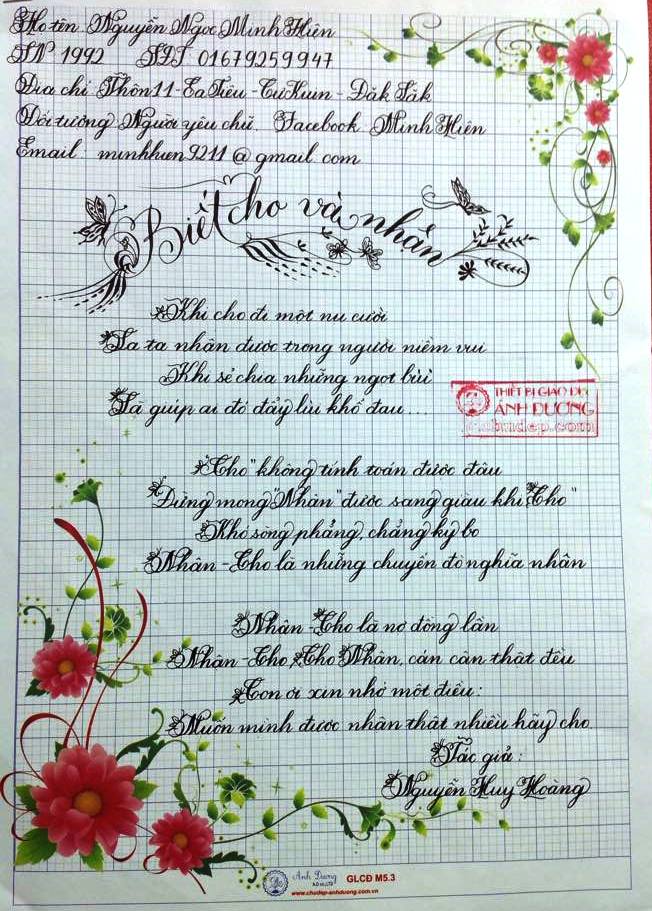 Họ tên: Nguyễn Ngọc Minh Hiên
SN 1992 SĐT 01679259947
Địa chỉ: Thôn 11 - Ea Tiêu - Cư Kuin - Đăk Lăk
Đối tượng: Người yêu chữ. Facebook Minh Hiên
Email: minhhien9211@gmail.com
Biết cho và nhận
Khi cho đi một nụ cười
Là ta nhận được trong người niềm vui
Khi sẻ chia những ngọt bùi
Là giúp ai đó đẩy lùi khổ đau...
"Cho" không tính toán được đâu
Đừng mong "Nhận" được sang giàu khi "Cho"
Khó sòng phẳng, chẳng kỳ bo
Nhận - Cho là những chuyến đò nghĩa nhân
Nhận - Cho là nợ đồng lần
Nhận - Cho, Cho Nhận, cán cân thật đều
Con ơi xin nhớ một điều:
Muốn mình được nhận thật nhiều hãy cho
Tác giả:
Nguyễn Huy Hoàng
THIẾT BỊ GIÁO DỤC
ÁNH DƯƠNG
Ánh Dương
GLCĐ M5.3
www.chudep-anhduong.com.vn